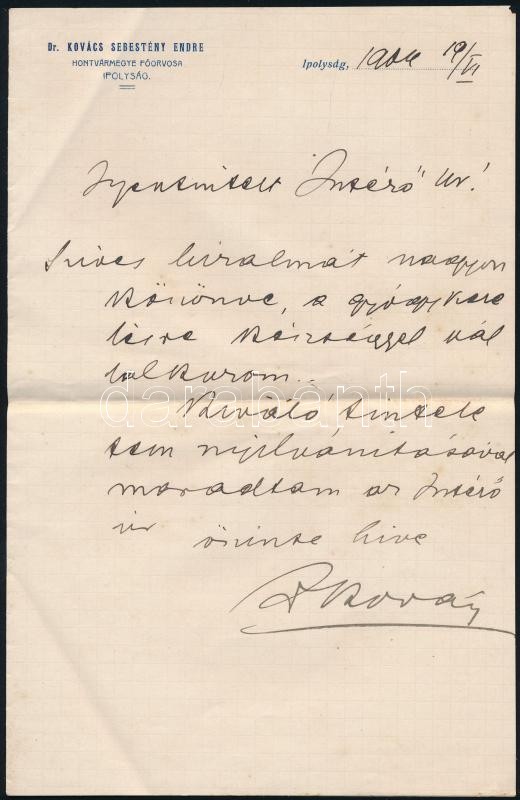 Dr. KOVÁCS SEBESTÉNY ENDRE
HONTVÁRMEGYE FŐORVOSA
IPOLYSÁG.
Ipolyság, 1904 19/VI
Igen tisztelt Intéző Úr!
Szíves bizalmát nagyon
köszönve, a gyógykeze
lésre készséggel vál
lalkozom..
Kiváló tisztele
tem nyilvánításával
maradtam az Intéző
úr őszinte híve
Dr Kovács
darabanth